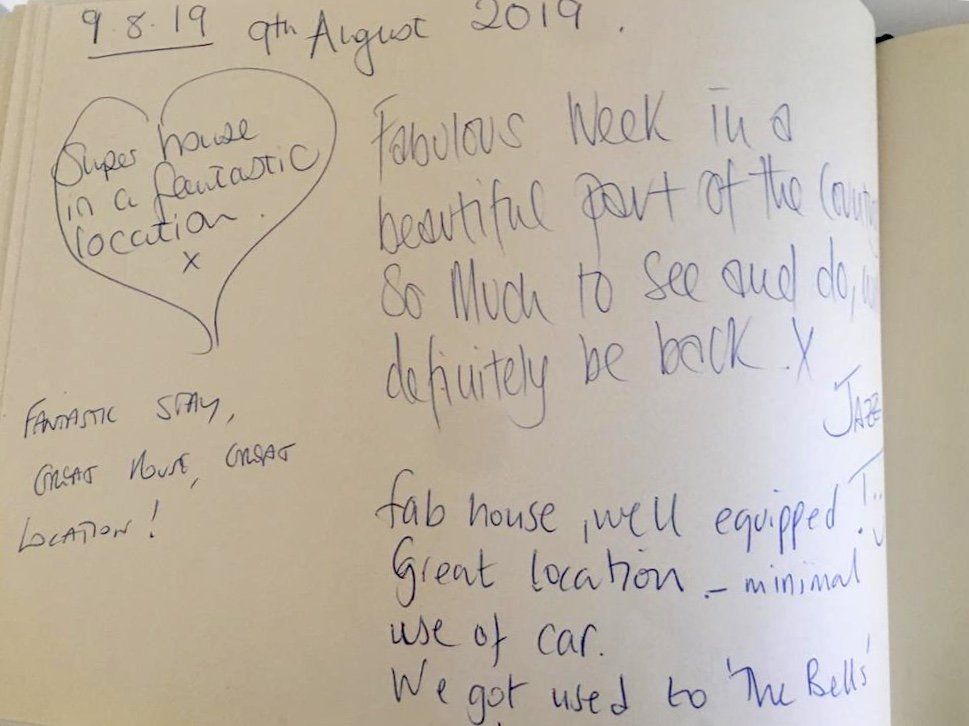 9.8.19 9th August 2019.
Super house
in a fantastic
location.
x
Fabulous Week in a
beautiful part of the
So Much to see and do,
definitely be back. X
Jazz
FANTASTIC STAY,
GREAT HOUSE, GREAT
LOCATION!
fab house, well equipped.
Great location - minimal
use of car.
We got used to 'The Bells'